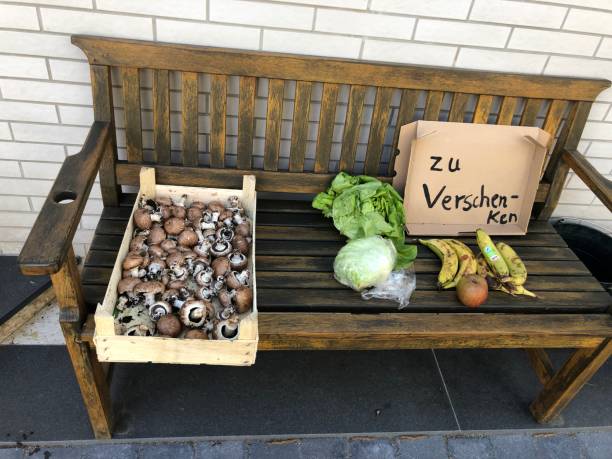 zu
Verschen-
ken